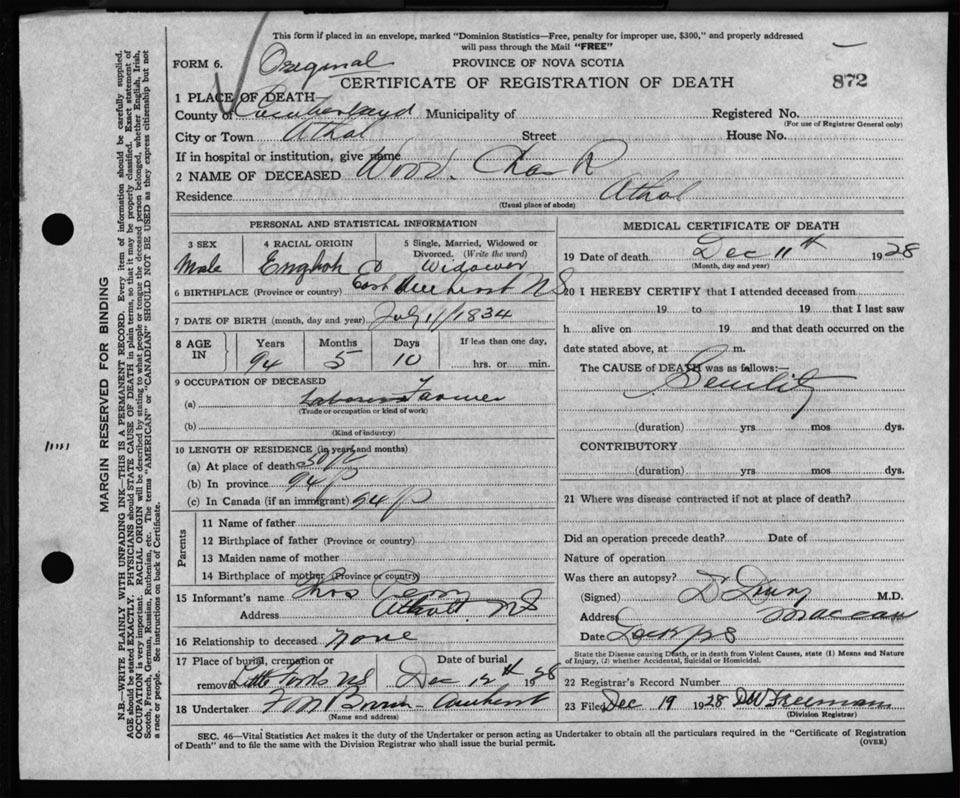 This form if placed in an envelope, marked "Dominion Statistics—Free, penalty for improper use, $300," and properly addressed
will pass through the Mail "FREE"
FORM 6. Original PROVINCE OF NOVA SCOTIA
CERTIFICATE OF REGISTRATION OF DEATH 872
1 PLACE OF DEATH
County of Cumberland Municipality of Registered No.
(For use of Registrar General only)
City or Town Athol Street House No.
If in hospital or institution, give name
2 NAME OF DECEASED Wood. Chas R
Residence Athol
(Usual place of abode)
PERSONAL AND STATISTICAL INFORMATION
3 SEX 4 RACIAL ORIGIN 5 Single, Married, Widowed or Divorced. (Write the word)
Male English Widower
6 BIRTHPLACE (Province or country) East Amherst NS
7 DATE OF BIRTH (month, day and year) July 1/1834
8 AGE IN Years Months Days If less than one day,
94 5 10 hrs. or min.
9 OCCUPATION OF DECEASED
(a) Laborer Farmer
(Trade or occupation or kind of work)
(b)
(Kind of industry)
10 LENGTH OF RESIDENCE (in years and months)
(a) At place of death
(b) In province 94
(c) In Canada (if an immigrant) 94
Parents
11 Name of father
12 Birthplace of father (Province or country)
13 Maiden name of mother
14 Birthplace of mother (Province or country)
15 Informant's name Thos
Address Athol NS
16 Relationship to deceased none
17 Place of burial, cremation or Date of burial
removal Little Forks NS Dec 12th 1928
18 Undertaker Brown - Amherst
(Name and address)
MEDICAL CERTIFICATE OF DEATH
19 Date of death Dec 11th 1928
(Month, day and year)
20 I HEREBY CERTIFY that I attended deceased from
19 to 19 that I last saw
h alive on 19 and that death occurred on
date stated above, at m.
The CAUSE of DEATH was as follows:—
Senility
(duration) yrs mos dys.
CONTRIBUTORY
(duration) yrs mos dys.
21 Where was disease contracted if not at place of death?
Did an operation precede death? Date of
Nature of operation
Was there an autopsy?
(Signed) Dr M.D.
Address Maccan
Date
State the Disease causing Death, or in death from Violent Causes, state (1) Means and Nature
of Injury, (2) whether Accidental, Suicidal or Homicidal.
22 Registrar's Record Number
23 Filed Dec 19 1928 DW Freeman
(Division Registrar)
SEC. 46—Vital Statistics Act makes it the duty of the Undertaker or person acting as Undertaker to obtain all the particulars required in the "Certificate of Registration
of Death" and to file the same with the Division Registrar who shall issue the burial permit. (OVER)
MARGIN RESERVED FOR BINDING
N.B.—WRITE PLAINLY WITH UNFADING INK—THIS IS A PERMANENT RECORD. Every item of information should be carefully supplied.
AGE should be stated EXACTLY. PHYSICIANS should STATE CAUSE OF DEATH in plain terms, so that it may be properly classified. Exact statement of
OCCUPATION is very important. RACIAL ORIGIN will be described by stating to what people or tongue the deceased person belonged, whether English, Irish,
Scotch, French, German, Russian, Ruthenian, etc. The terms "AMERICAN" or "CANADIAN" SHOULD NOT BE USED as they express citizenship but not
a race or people. See instructions on back of Certificate.